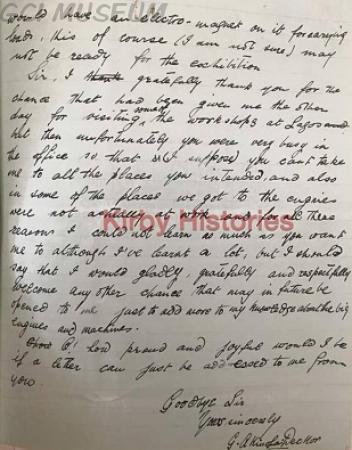 GCI MUSEUM
would have an electro-magnet on it for carrying
loads, this of course (I am not sure) may
not be ready for the exhibition
Sir, I thank gratefully thank you for the
chance that had been given me the other
day for visiting some of the workshops at Lagos
but then unfortunately you were very busy in
the office so that I suppose you cant take
me to all the places you intended, and also
in some of the places we got to the engines
were not at work and for all these
Kirby Histories
reasons I could not learn as much as you want
me to although I've learnt a lot, but I should
say that I would gladly, gratefully and respectfully
welcome any other chance that may in future be
opened to me just to add more to my knowledge about the big
engines and machines.
how proud and joyful would I be
if a letter can just be addressed to me from
you.
Goodbye Sir
Yours sincerely
G. Akin